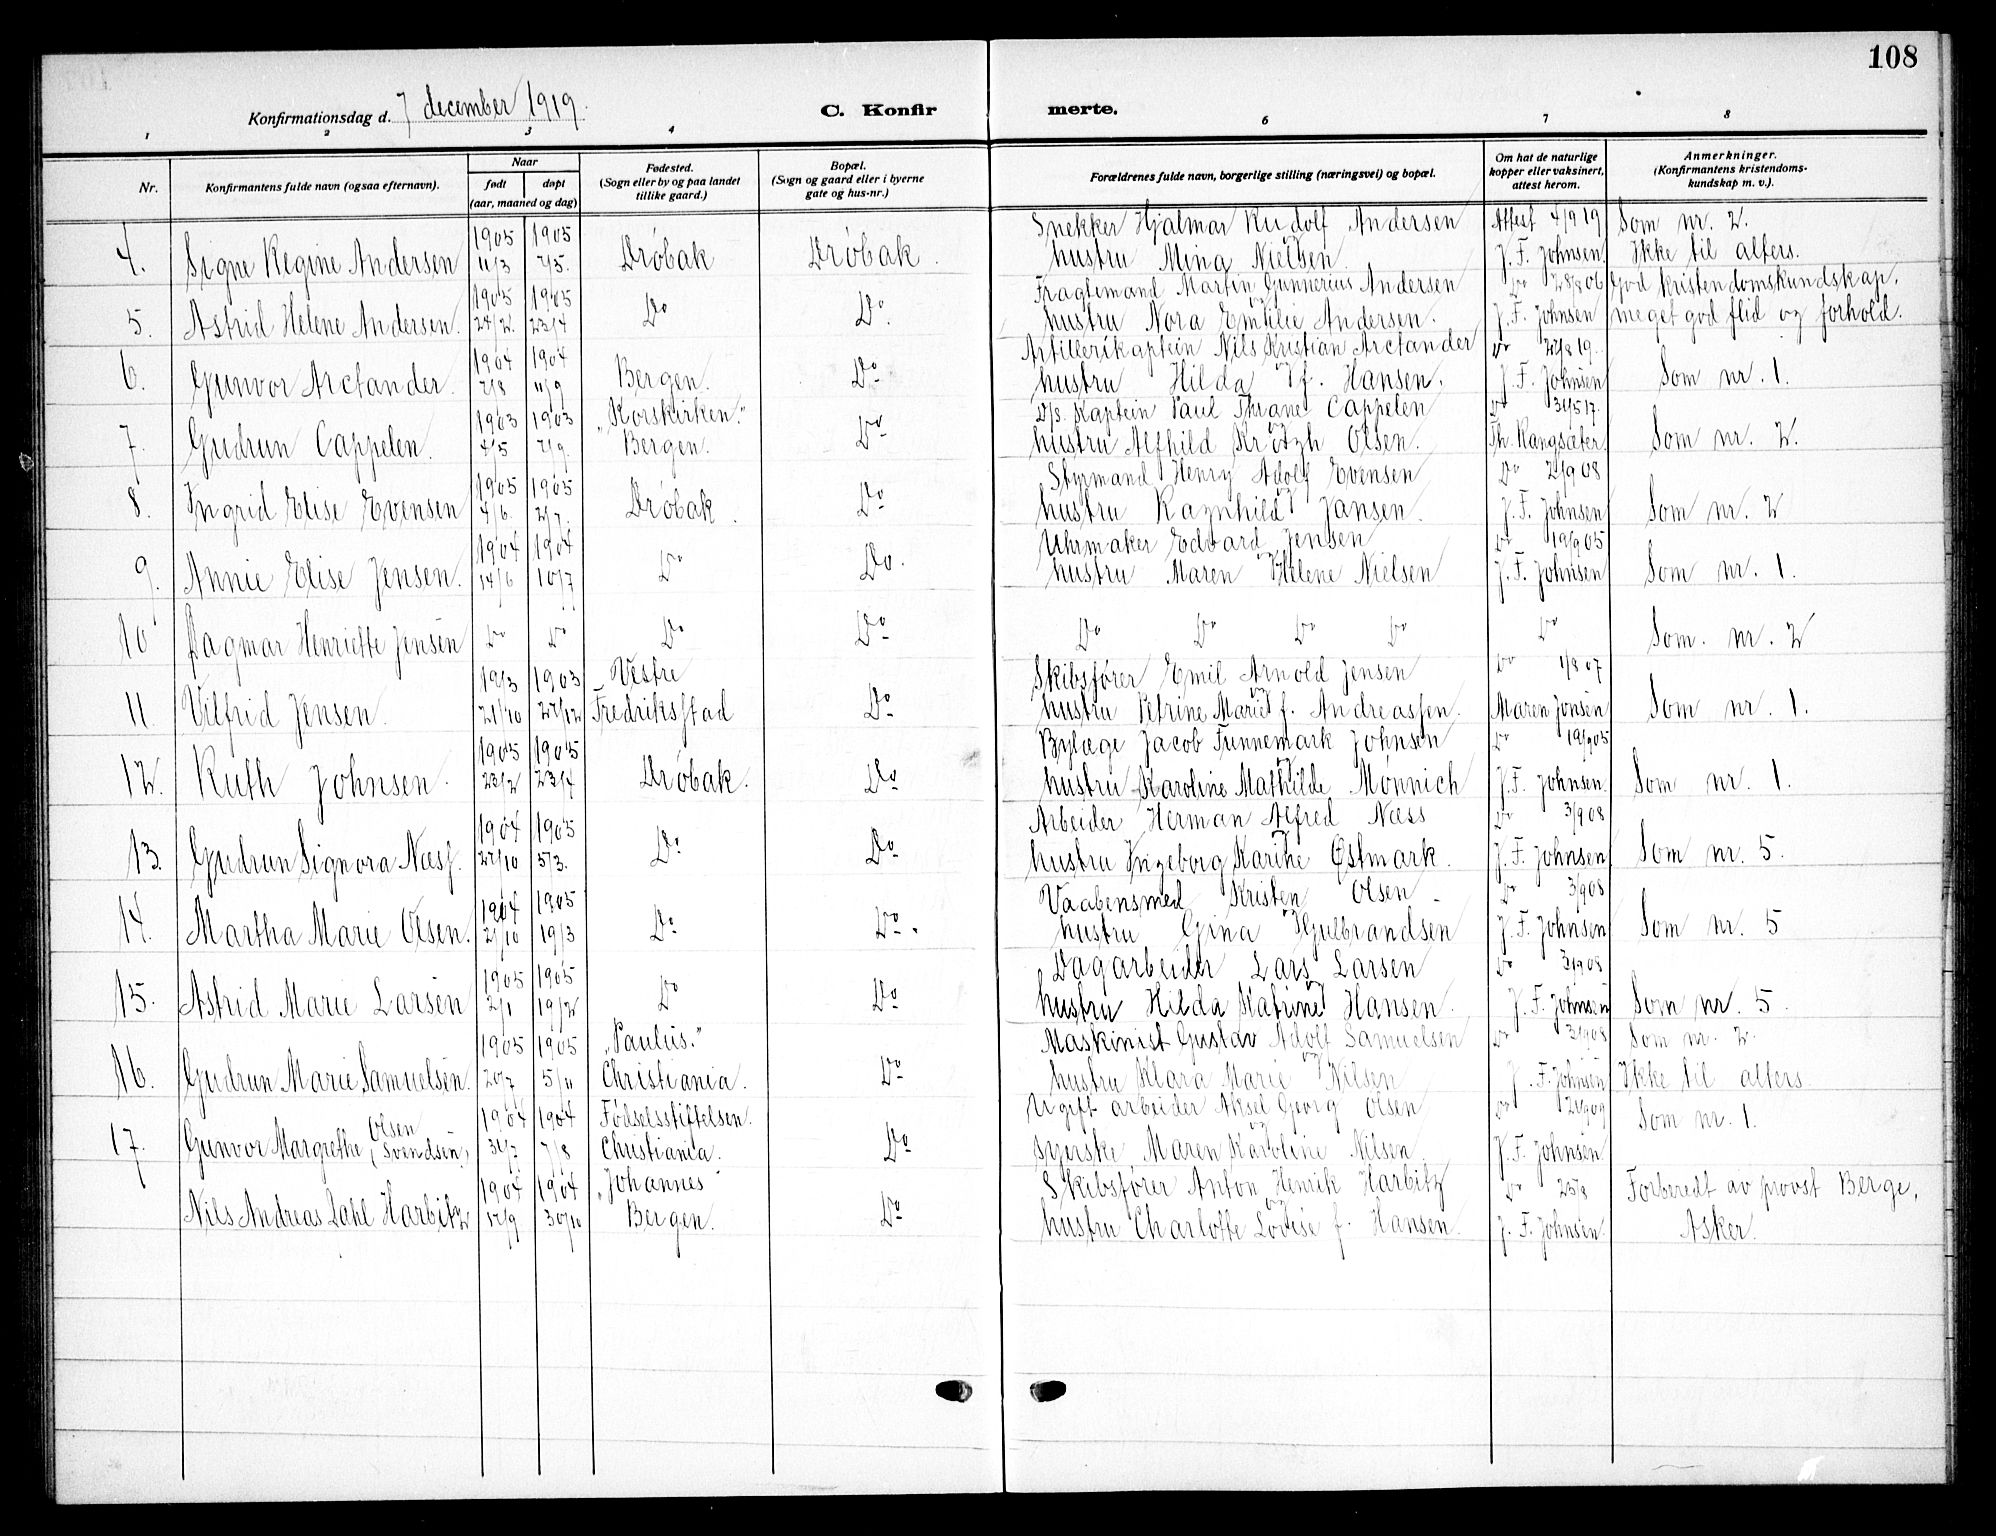 108
Konfirmationsdag d. 7 december 1919.
C. Konfir merte.
1 2 3 4 6 7 8
Nr.
Konfirmantens fulde navn (ogsaa efternavn).
Naar
født døpt
(aar, maaned og dag)
Fødested.
(Sogn eller by og paa landet
tillike gaard.)
Bopæl.
(Sogn og gaard eller i byerne
gate og hus-nr.)
Forældrenes fulde navn, borgerlige stilling (næringsvei) og bopæl.
Om hat de naturlige
kopper eller vaksinert,
attest herom.
Anmerkninger.
(Konfirmantens kristendoms-
kundskap m. v.).
1905 1905 Snekker Hjalmar Rudolf Andersen Attest 4/9 19 Som nr. 2.
4. Signe Regine Andersen 11/3 7/5. Drøbak Drøbak. hustru Mina Nielsen J. F. Johnsen. Ikke til alters.
1905 1905 Fragtemand Martin Gunnerius Andersen Do 28/8 06 God kristendomskundskap,
5. Astrid Helene Andersen. 24/2. 23/4 Do Do. hustru Nora Emilie Andersen. J. F. Johnsen meget god flid og forhold.
1904 1904 Artillerikaptein Nils Kristian Arctander Do 22/8 19.
6. Gunvor Arctander. 2/8 11/9 Bergen. Do hustru Hilda f. Hansen. J. F. Johnsen Som nr. 1.
1903 1903 "Korskirken." D/s. Kaptein Paul Thrane Cappelen Do 31/5 17.
7. Gudrun Cappelen. 4/5 2/9. Bergen. Do hustru Alfhild Olsen. Th. Rangsæter. Som nr. 2.
1905 1905 Styrmand Henry Adolf Evensen Do 2/9 08
8. Ingrid Elise Evensen 4/6. 2/7. Drøbak. Do hustru Ragnhild Jansen. J. F. Johnsen Som nr. 2
1904 1904 Uhrmaker Edvard Jensen Do 19/9 05
9. Annie Elise Jensen. 14/6 10/7 Do Do. hustru Maren Helene Nielsen J. F. Johnsen Som nr. 1.
10 Dagmar Henriette Jensen Do Do Do Do Do Do Do Do Do Som. nr. 2
1903 1903 Vestre Skibsfører Emil Arnold Jensen Do 1/8 07
11. Vilfrid Jensen. 21/10 27/12 Fredriksstad Do hustru Petrine Marie f. Andreassen. Maren Jensen Som nr. 1.
1905 1905 Bylæge Jacob Tunnemark Johnsen Do 19/9 05
12. Ruth Johnsen. 23/2 23/4 Drøbak. Do hustru Karoline Mathilde Mønnich J. F. Johnsen. Som nr. 1.
1904 1905 Arbeider Herman Alfred Næss Do 3/9 08
13. Gudrun Signora Næss. 27/10 5/3. Do Do hustru Ingeborg Karine Østmark. J. F. Johnsen Som nr. 5.
1904 1905 Vaabensmed Kristen Olsen Do 3/9 08
14. Martha Marie Olsen. 2/10 19/3 Do Do. hustru Gina Gulbrandsen J. F. Johnsen Som nr. 5
1905 1905 Dagarbeider Lars Larsen Do 3/9 08
15. Astrid Marie Larsen 2/1 19/2 Do Do hustru Hilda Katrine Hansen. J. F. Johnsen Som nr. 5
1905 1905 "Paulus." Maskinist Gustav Adolf Samuelsen Do 3/9 08 Som nr. 2.
16. Gudrun Marie Samuelsen. 20/7 5/11 Christiania. Do hustru Klara Marie Nilsen J. F. Johnsen Ikke til alters
1904 1904 Fødselsstiftelsen. Ugift arbeider Aksel Georg Olsen Do 2/9 09 Som nr. 1.
17. Gunvor Margrethe Olsen (Svendsen) 31/7 7/8 Christiania. Do syerske Maren Karoline Nilsen. J. F. Johnsen.
1904 1904 "Johannes" Skibsfører Anton Henrik Harbitz Do 25/8 Forberedt av provst Berge,
Nils Andreas Dahl Harbitz 17/9 30/10 Bergen. Do hustru Charlotte Lovise f. Hansen. J. F. Johnsen. Asker.